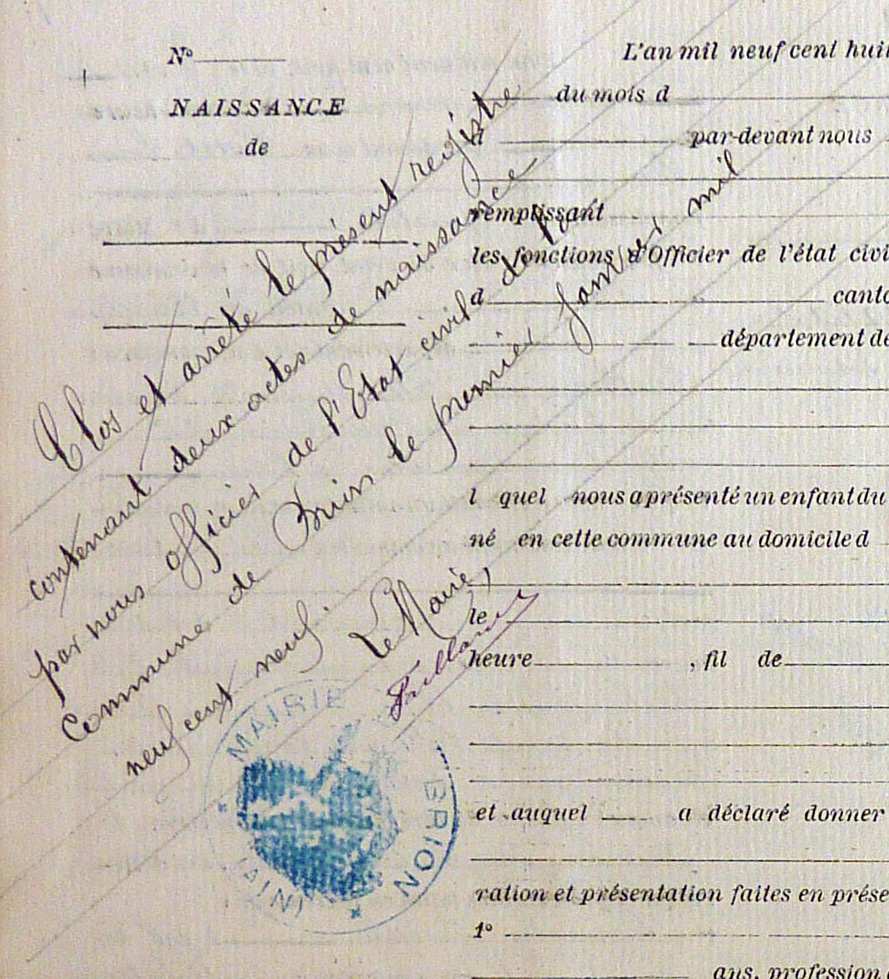 N°
NAISSANCE
de
Clos et arrêté le présent registre
contenant deux actes de naissance
par nous officier de l'Etat civil de la
Commune de Brion le premier janvier mil
neuf cent neuf.
Le Maire,
MAIRIE
BRION
(AIN)
L'an mil neuf cent huit
du mois d
d par-devant nous
remplissant
les fonctions d'Officier de l'état civi
d canto
département de
l quel nous a présenté un enfant du
né en cette commune au domicile d
le
heure , fil de
et auquel a déclaré donner
ration et présentation faites en prése
1°
ans, profession